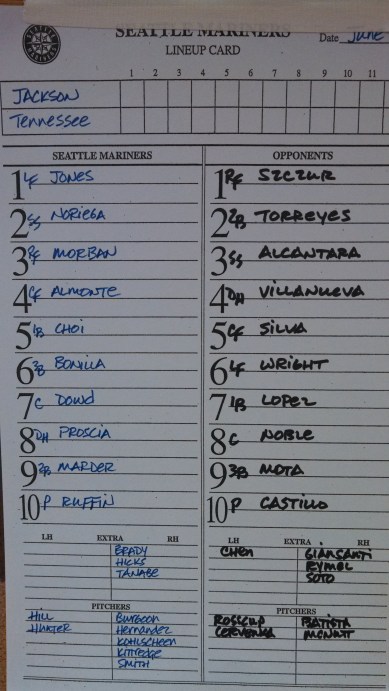 SEATTLE MARINERS
LINEUP CARD
Date June
1 2 3 4 5 6 7 8 9 10 11
JACKSON
Tennessee
SEATTLE MARINERS OPPONENTS
1 LF JONES 1 RF SZCZUR
2 SS NORIEGA 2 2B TORREYES
3 RF MORBAN 3 SS ALCANTARA
4 CF ALMONTE 4 DH VILLANUEVA
5 1B CHOI 5 CF SILVA
6 3B BONILLA 6 LF WRIGHT
7 C DOWD 7 1B LOPEZ
8 DH PROSCIA 8 C NOBLE
9 2B MARDER 9 3B MOTA
10 P RUFFIN 10 P CASTILLO
LH EXTRA RH LH EXTRA RH
BRADY CHEN GIANSANTI
HICKS RYMEL
TANABE SOTO
PITCHERS PITCHERS
HILL Burgoon ROSSCUP BATISTA
HUNTER Hernandez CERVENKA MCNUTT
KOHLSCHEEN
KITTREDGE
SMITH